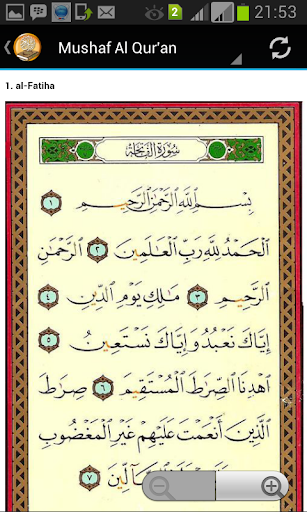 2
21:53
Mushaf Al Qur'an
1. al-Fatiha
سُورَةُ الْفَاتِحَةِ
بِسْمِ اللَّهِ الرَّحْمَٰنِ الرَّحِيمِ ١
الْحَمْدُ لِلَّهِ رَبِّ الْعَالَمِينَ ٢ الرَّحْمَٰنِ
الرَّحِيمِ ٣ مَالِكِ يَوْمِ الدِّينِ ٤
إِيَّاكَ نَعْبُدُ وَإِيَّاكَ نَسْتَعِينُ ٥
اهْدِنَا الصِّرَاطَ الْمُسْتَقِيمَ ٦ صِرَاطَ
الَّذِينَ أَنْعَمْتَ عَلَيْهِمْ غَيْرِ الْمَغْضُوبِ
٧